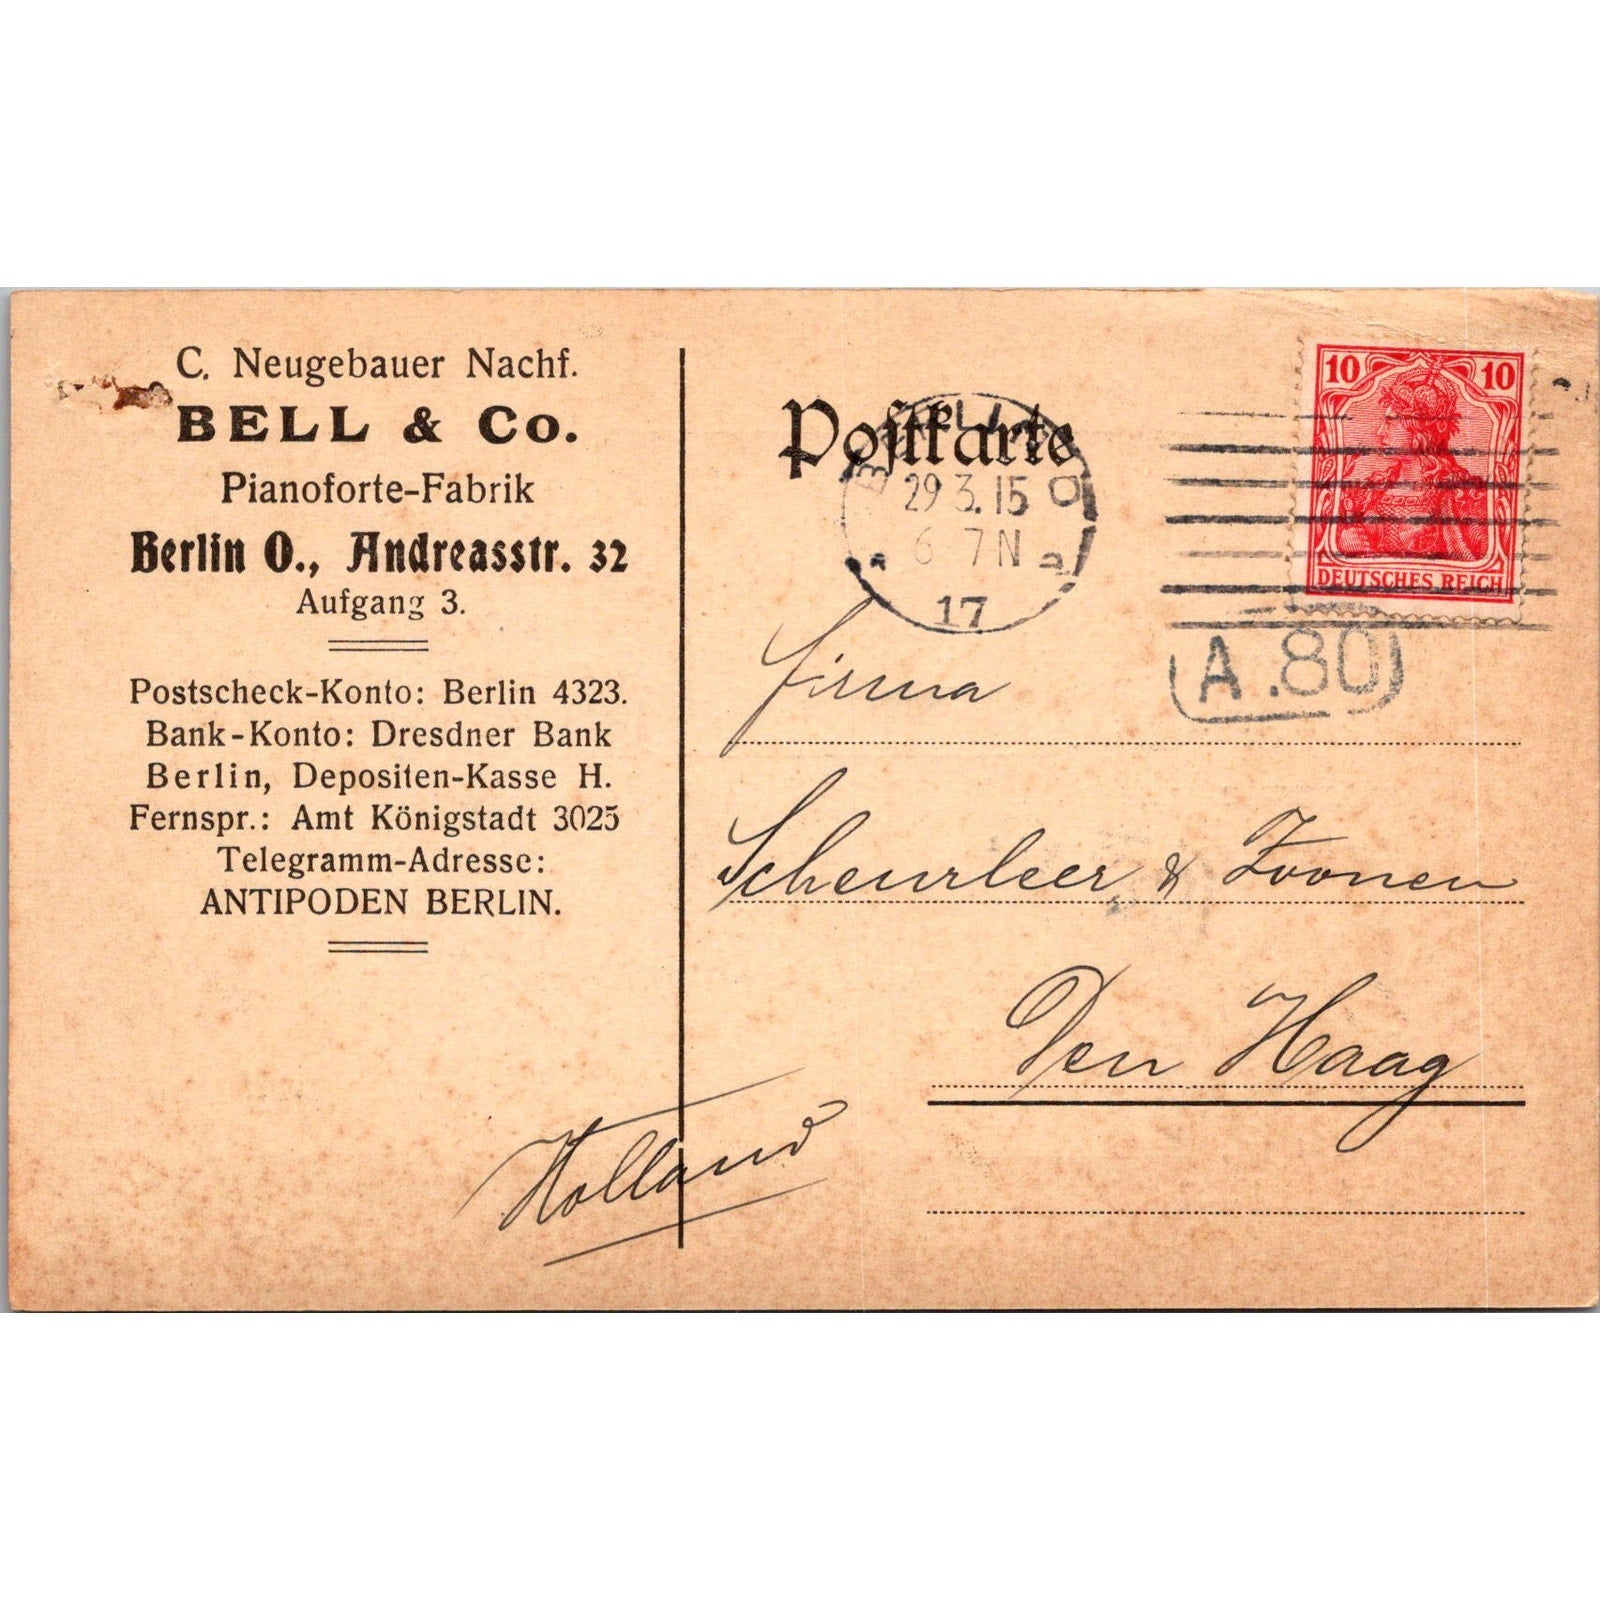 C. Neugebauer Nachf.
BELL & Co.
Pianoforte-Fabrik
Berlin O., Andreasstr. 32
Aufgang 3.
Postscheck-Konto: Berlin 4323.
Bank-Konto: Dresdner Bank
Berlin, Depositen-Kasse H.
Fernspr.: Amt Königstadt 3025
Telegramm-Adresse:
ANTIPODEN BERLIN.
Postkarte
BERLIN O
29 3. 15
6 7 N
* 17 a
10 10
DEUTSCHES REICH
A.80
Firma
Scheurleer & Zoonen
Den Haag
Holland